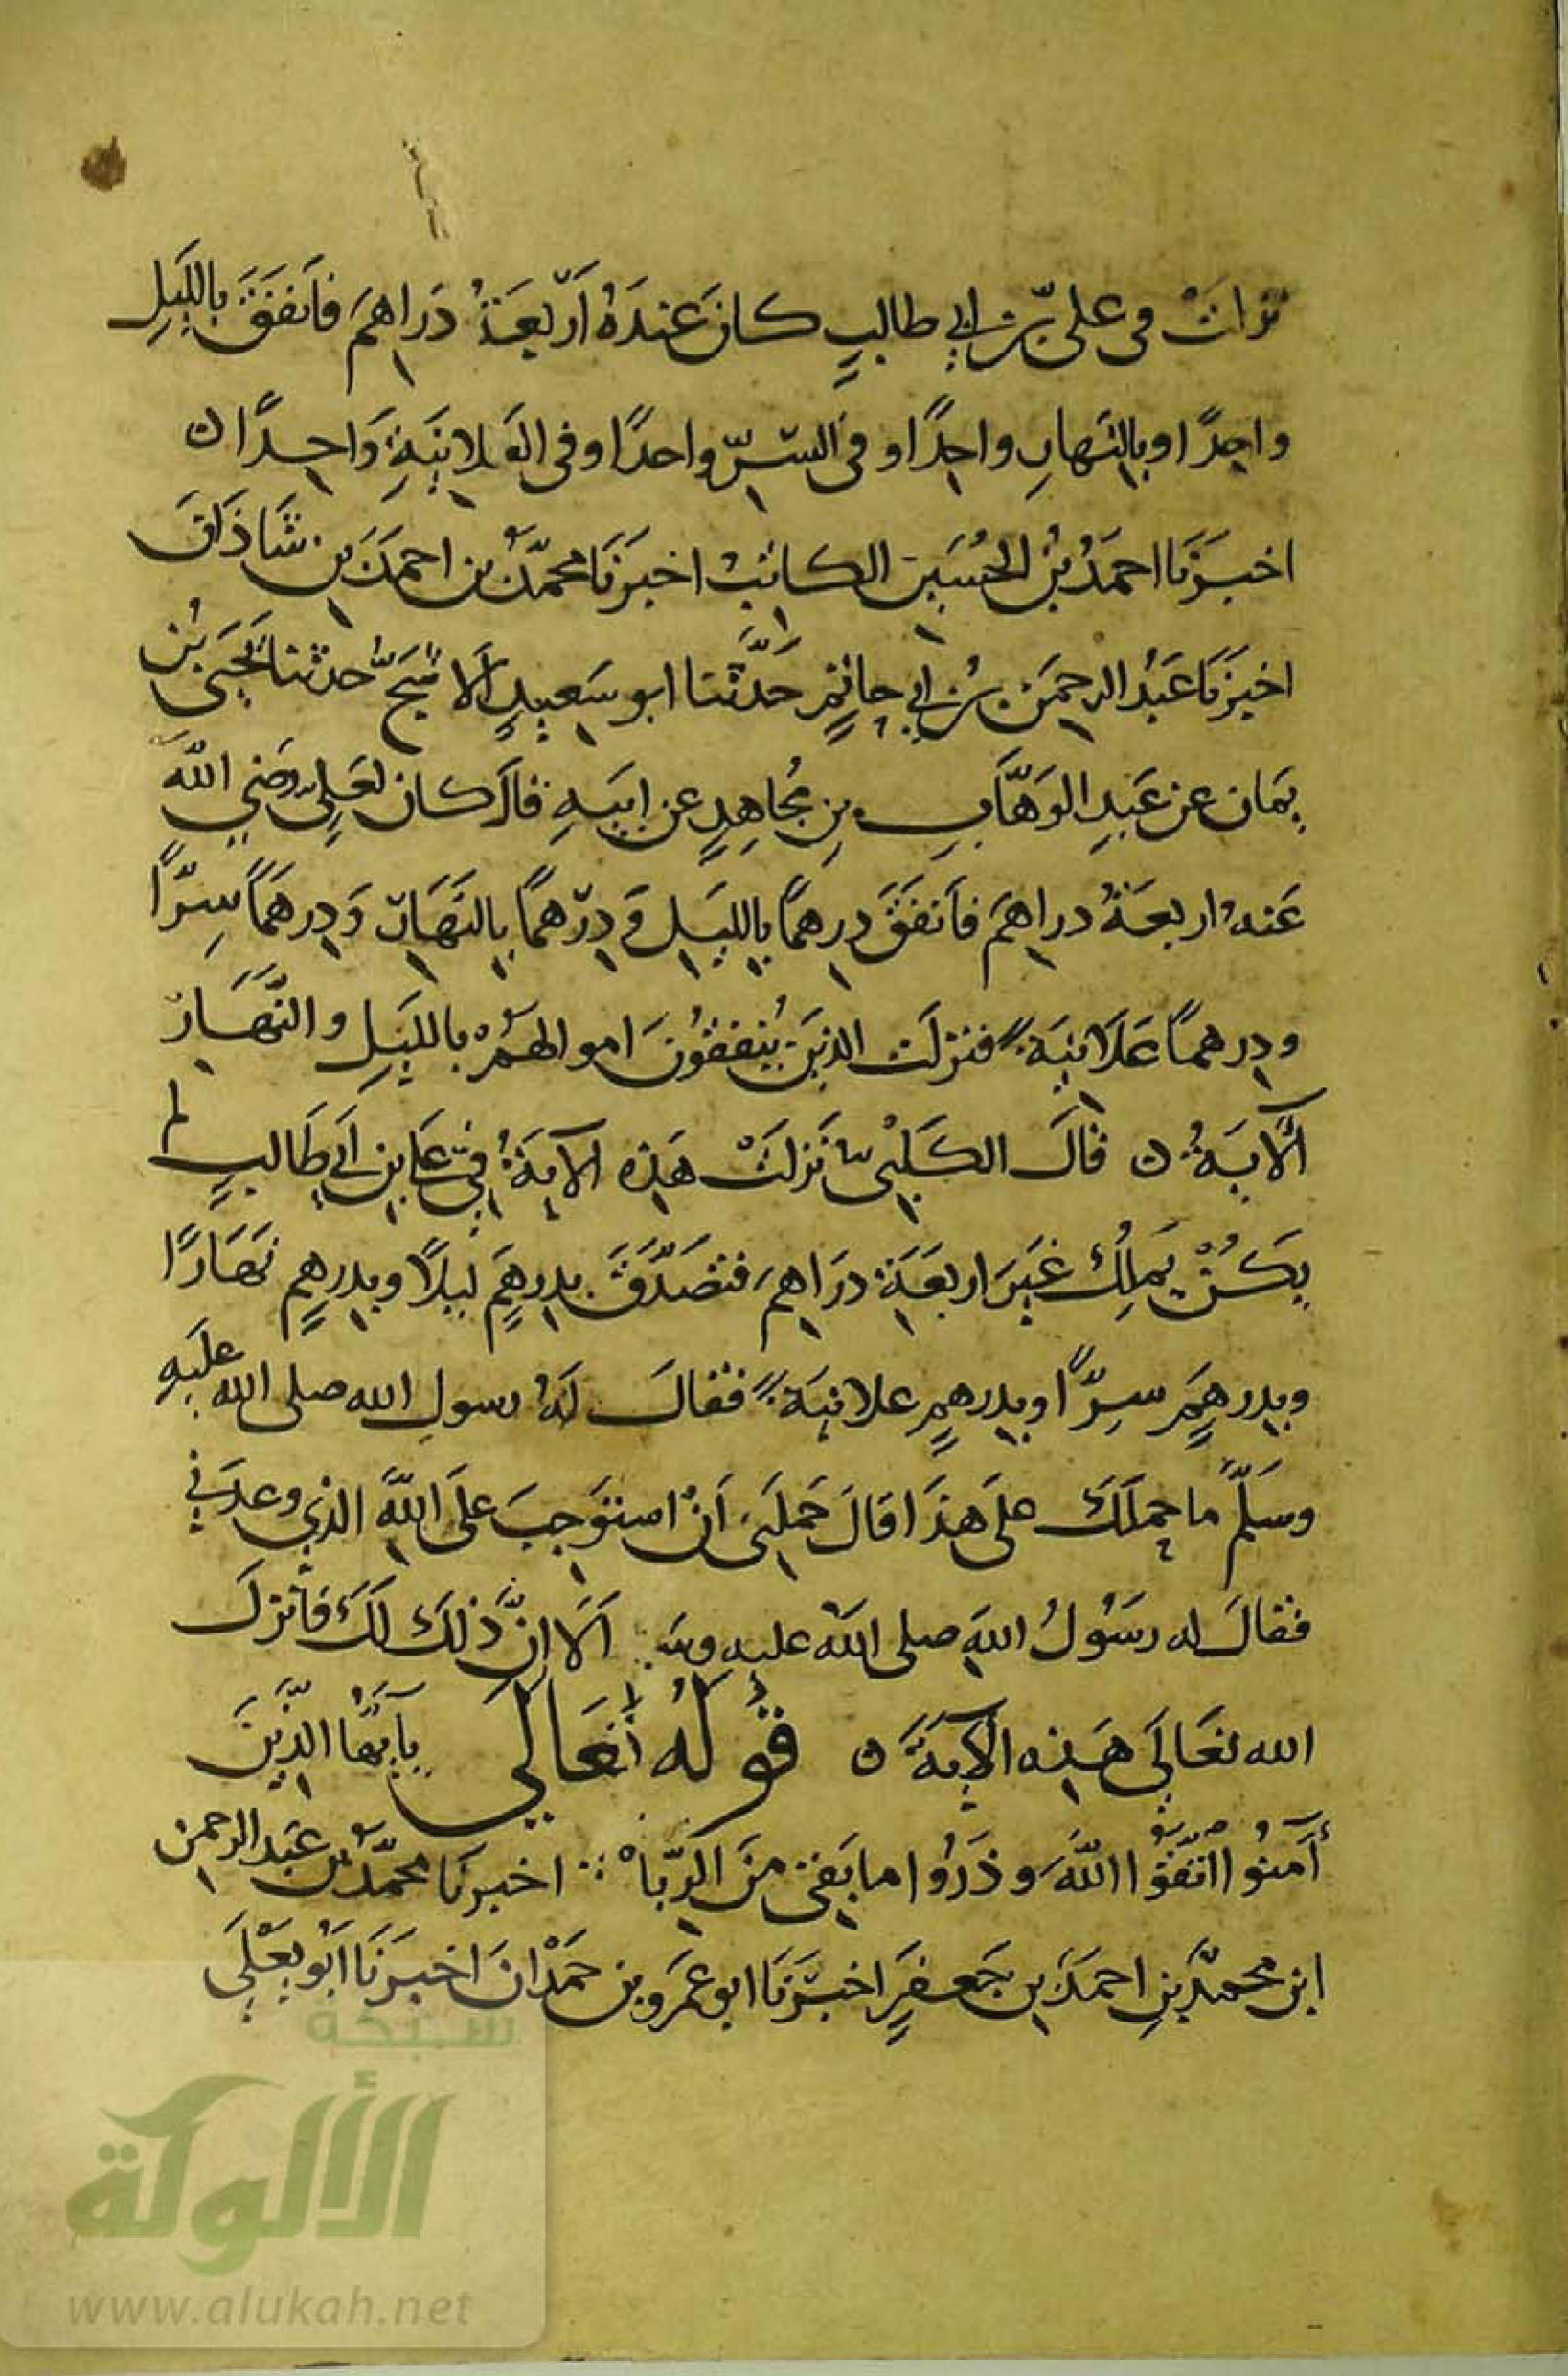 نزلت في علي بن ابي طالبٍ كانَ عندَهُ اَربعَةُ دَراهمَ فاَنفَقَ بالليَلِ
واحِدًا وبالنَهارِ واحِدًا وفي السِّرّ واحدًا وفي العَلانِيَةِ وَاحِدًا ه
اخبَرَنا احمَدُ بْنُ الحُسَينِ الكاتبُ اخبَرَنَا محمّدُ بن احمَدَ بنِ شَاذَانَ
اخبَرَنَا عَبْدُ الرحمَنِ بنُ ابي حاتمٍ حَدَّثنا ابو سَعِيدٍ اَلاشَجُّ حدثنا يَحْيَى بْنُ
يمَان عن عَبدِ الوَهّابِ بنِ مُجاهِدٍ عن ابيَهِ قالَ كان لعَلِيٍّ رضي اللهُ
عَنهُ اربعَةُ دراهمَ فاَنفَقَ دِرهمًا بالليَلِ وَدِرْهمًا بالنَهَارِ وَدِرهَمًا سِرًّا
ودِرهمًا عَلَانِيَةً فنزلَت الذينَ يُنفِقُونَ اموالهُمْ بالليَلِ والنَّهَارِ
اَلآيَةُ ه قالَ الكَلْبيّ نَزلَتْ هَذِه الآيَةُ في عَلي بن اَبي طَالبٍ لم
يَكُنْ يَملِكُ غَيَر اربعَةِ درَاهِمَ فتصَدَّقَ بدِرهَمٍ ليلًا وبدِرهِمٍ نهَارًا
وبدِرهِمٍ سِرًّا وبدِرهِمٍ علانيَةً فقالَ لَهُ رسول الله صلى الله عليَهِ
وسَلّمَ ما حملَكَ على هذَا قالَ حَملَني اَنْ استَوجِبَ علَى اللهِ الذي وعدَني
فقالَ له رسَوُلُ اللهِ صلى اللهُ عليه وسلم اَلَا انَّ ذلكَ لَكَ فاَنزلَ
الله تعَالَى هَذِه الآيَةَ ه قوُلُهُ تعَالَى يا اَيُّها الذِّينَ
آمَنُوا اتّقوُا اللهَ وذَرُوا ما بَقِيَ مِنَ الرِّبَا اخبرنَا محمّدُ بن عَبد الرحمن
ابن محمدِ بنِ احمدَ بن جَعفرٍ اخبَرَنَا ابو عَمَرو بن حَمْدَانَ اخبَرَنَا اَبُو يَعْلَى
شبكة
الألوكة
www.alukah.net